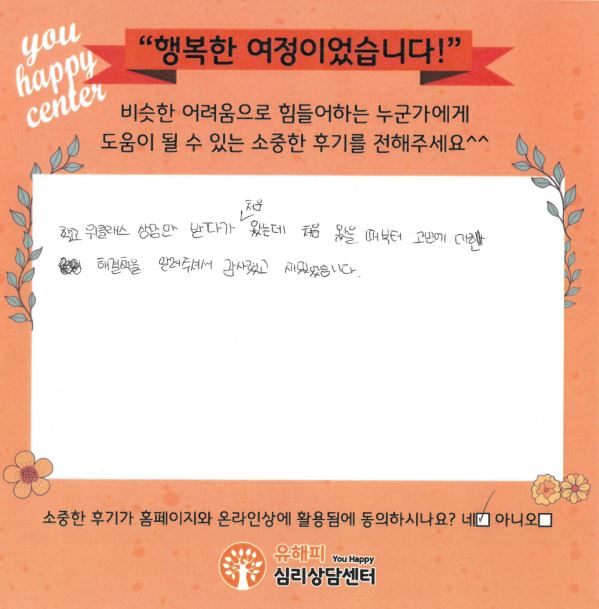 you
happy
center
“행복한 여정이었습니다!”
비슷한 어려움으로 힘들어하는 누군가에게
도움이 될 수 있는 소중한 후기를 전해주세요^^
처음
학교 위클래스 상담만 받다가 왔는데 처음 왔을 때부터 고민에 대한
해결책을 알려주셔서 감사했고 재밌었습니다.
소중한 후기가 홈페이지와 온라인상에 활용됨에 동의하시나요? 네☑ 아니오☐
유해피 You Happy
심리상담센터